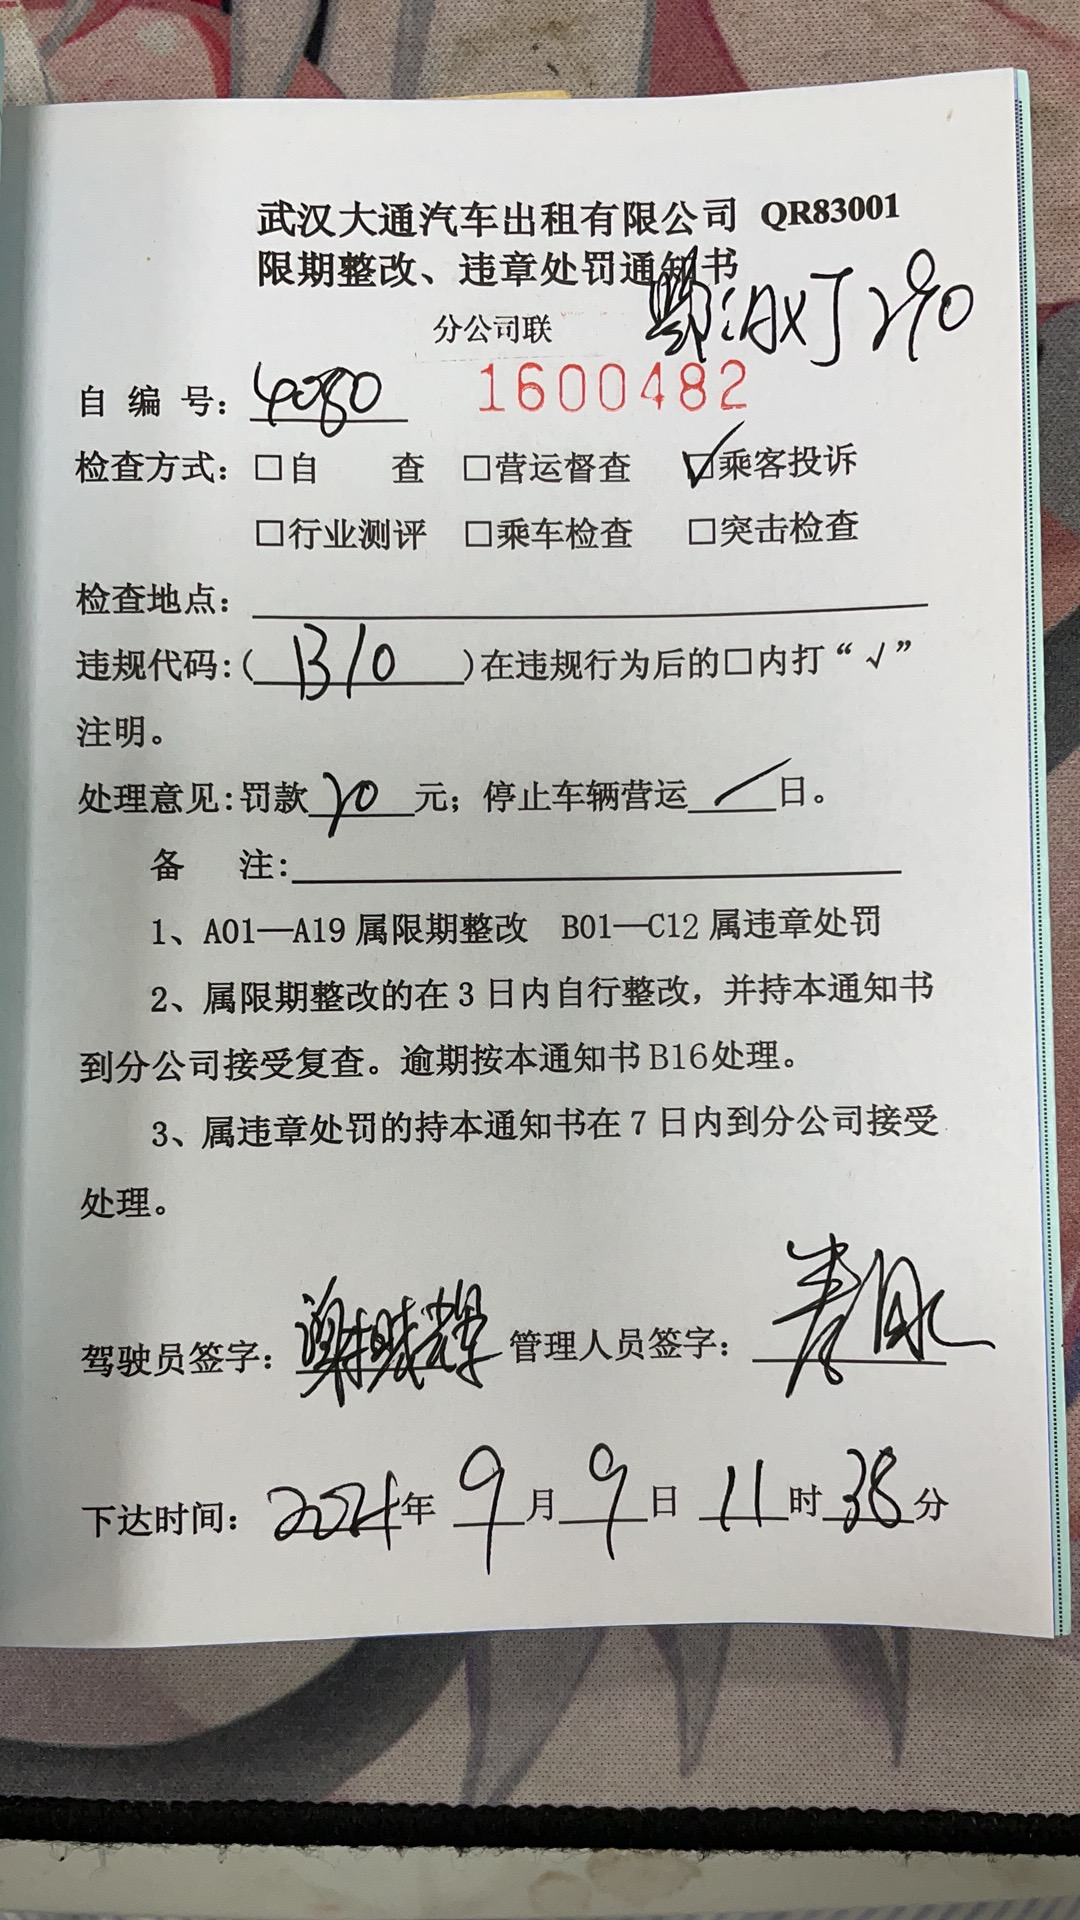 武汉大通汽车出租有限公司 QR83001
限期整改、违章处罚通知书
分公司联
自编号: 4080 1600482
检查方式: □自 查 □营运督查 ☑乘客投诉
□行业测评 □乘车检查 □突击检查
检查地点:
违规代码:( B10 )在违规行为后的□内打“√”
注明。
处理意见:罚款 20 元; 停止车辆营运 / 日。
备 注:
1、A01—A19属限期整改 B01—C12属违章处罚
2、属限期整改的在3日内自行整改,并持本通知书
到分公司接受复查。逾期按本通知书B16处理。
3、属违章处罚的持本通知书在7日内到分公司接受
处理。
驾驶员签字: 管理人员签字:
下达时间: 2021年 9月 9日 11时 38分